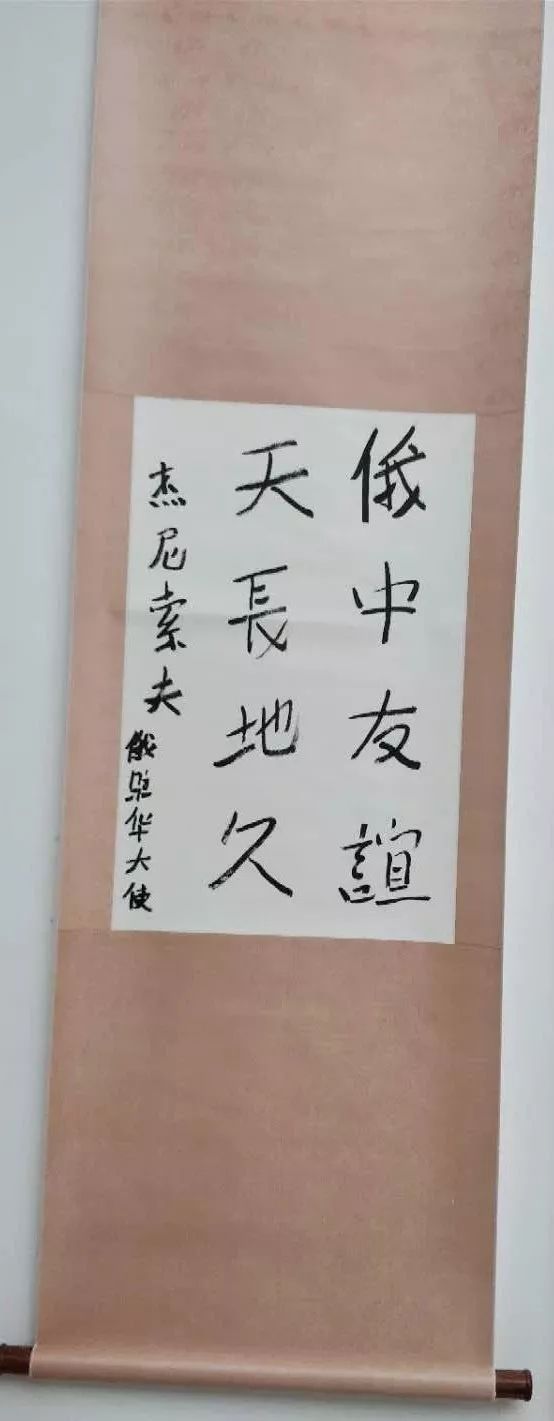 俄中友誼
天長地久
杰尼索夫
俄駐华大使